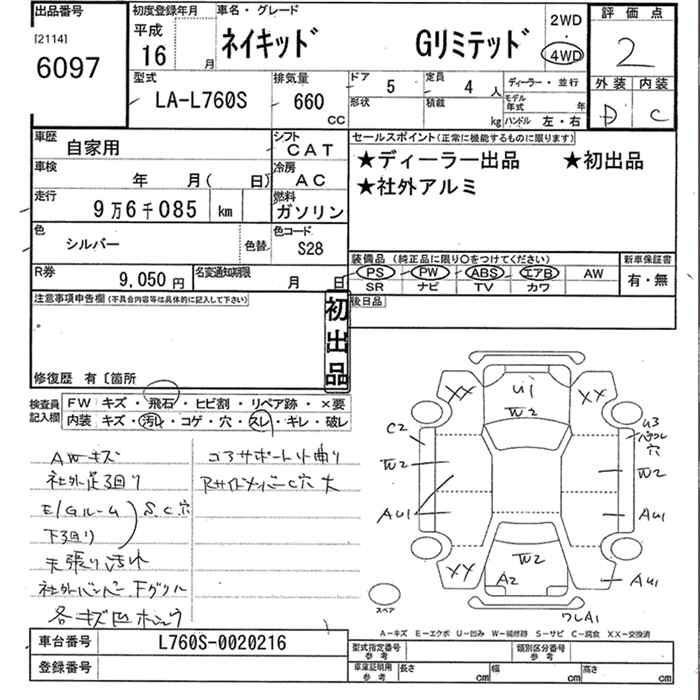 出品番号
[2114]
6097
初度登録年月
平成
16 月
車名・グレード
ネイキッド Gリミテッド
2WD
・
4WD
評価点
2
外装 内装
D C
型式
LA-L760S
排気量
660
CC
ドア 5
形状
定員 4 人
積載 kg
ディーラー・並行
モデル年式 年
ハンドル 左・右
車歴
自家用
シフト
CAT
車検
年 月( 日)
冷房
AC
走行
9万6千085 km
燃料
ガソリン
色
シルバー
色替
色コード
S28
R券
9,050円
名変通知期限
月 日
セールスポイント(正常に機能するものに限ります)
★ディーラー出品 ★初出品
★社外アルミ
装備品(純正品に限り○をつけてください)
PS PW ABS エアB AW
SR ナビ TV カワ
新車保証書
有・無
後日品
注意事項申告欄(不具合内容等は具体的に記入して下さい)
初出品
修復歴 有〔箇所
検査員記入欄
FW キズ・飛石・ヒビ割・リペア跡・×要
内装 キズ・汚れ・コゲ・穴・スレ・キレ・破レ
AWキズ
社外足廻り
E/Gルーム
下廻り
S.C.穴
天張り汚れ
社外バンパー Fグリル
各キズ凹
コアサポート小曲り
RサイドメンバーC穴大
XX
U1
W2
XX
C2
W2
AU1
U3
穴
W2
AU1
AU1
XX
W2
A2
ワレA1
スペア
A−キズ E−エクボ U−凹み W−補修跡 S−サビ C−腐食 XX−交換済
車台番号
L760S-0020216
登録番号
型式指定番号
参考
類別区分番号
参考
車庫証明用
参考
長さ cm
幅 cm
高さ cm